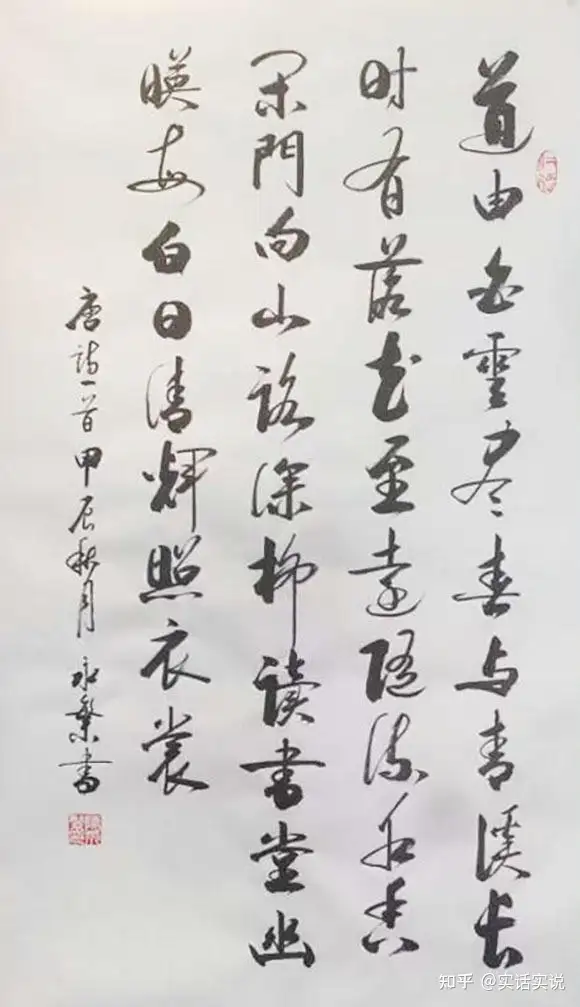 道由白雲尽春与青溪长
时有落花至遠随流水香
闲門向山路深柳读書堂幽
暎每白日清輝照衣裳
唐诗一首甲辰秋月永繁書
知乎 @实话实说